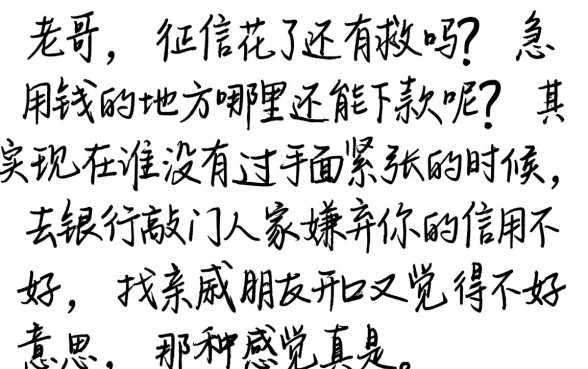 老哥，征信花了还有救吗？急
用钱的地方哪里还能下款呢？其
实现在谁没有过手面紧张的时候，
去银行敲门人家嫌弃你的信用不
好，找亲戚朋友开口又觉得不好
意思，那种感觉真是。